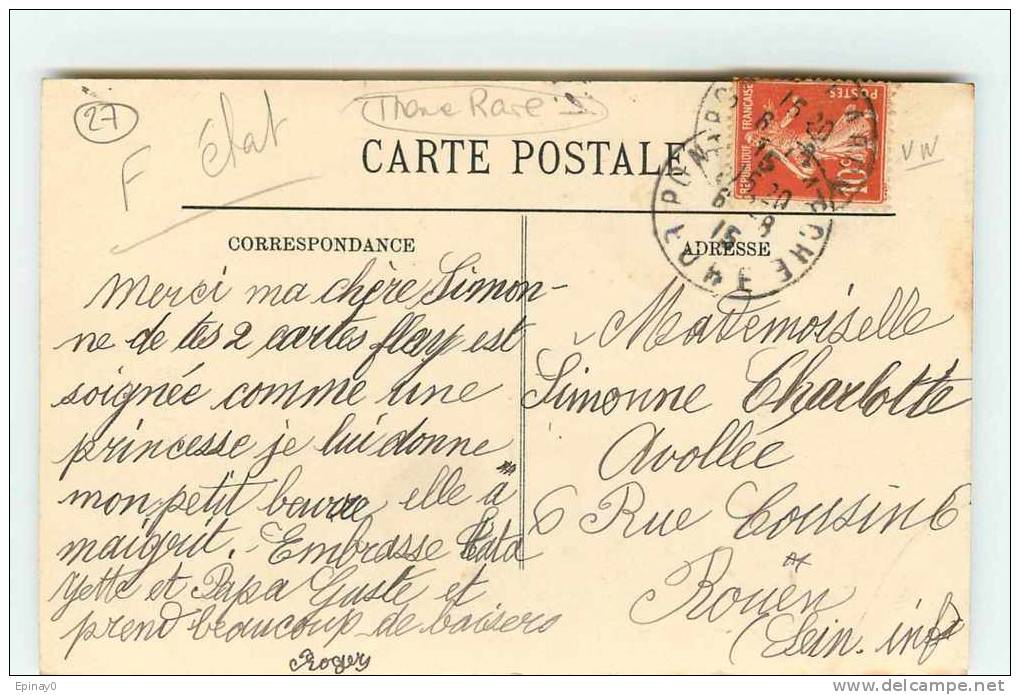 27
F
état
Theme Rare
VN
CARTE POSTALE
REPUBLIQUE FRANÇAISE
POSTES
10c
15-20
6-8
15
CORRESPONDANCE
ADRESSE
Merci ma chère Simon-
ne de tes 2 cartes flay est
soignée comme une
princesse je lui donne
mon petit beurre elle a
maigrit. Embrasse Tata
Yette et Papa Guste et
prend beaucoup de baisers
Roger
Mademoiselle
Simonne Charlotte
Avollée
6 Rue Cousin 6
Rouen
(Sein. infr
Epinay0
delcampe.net